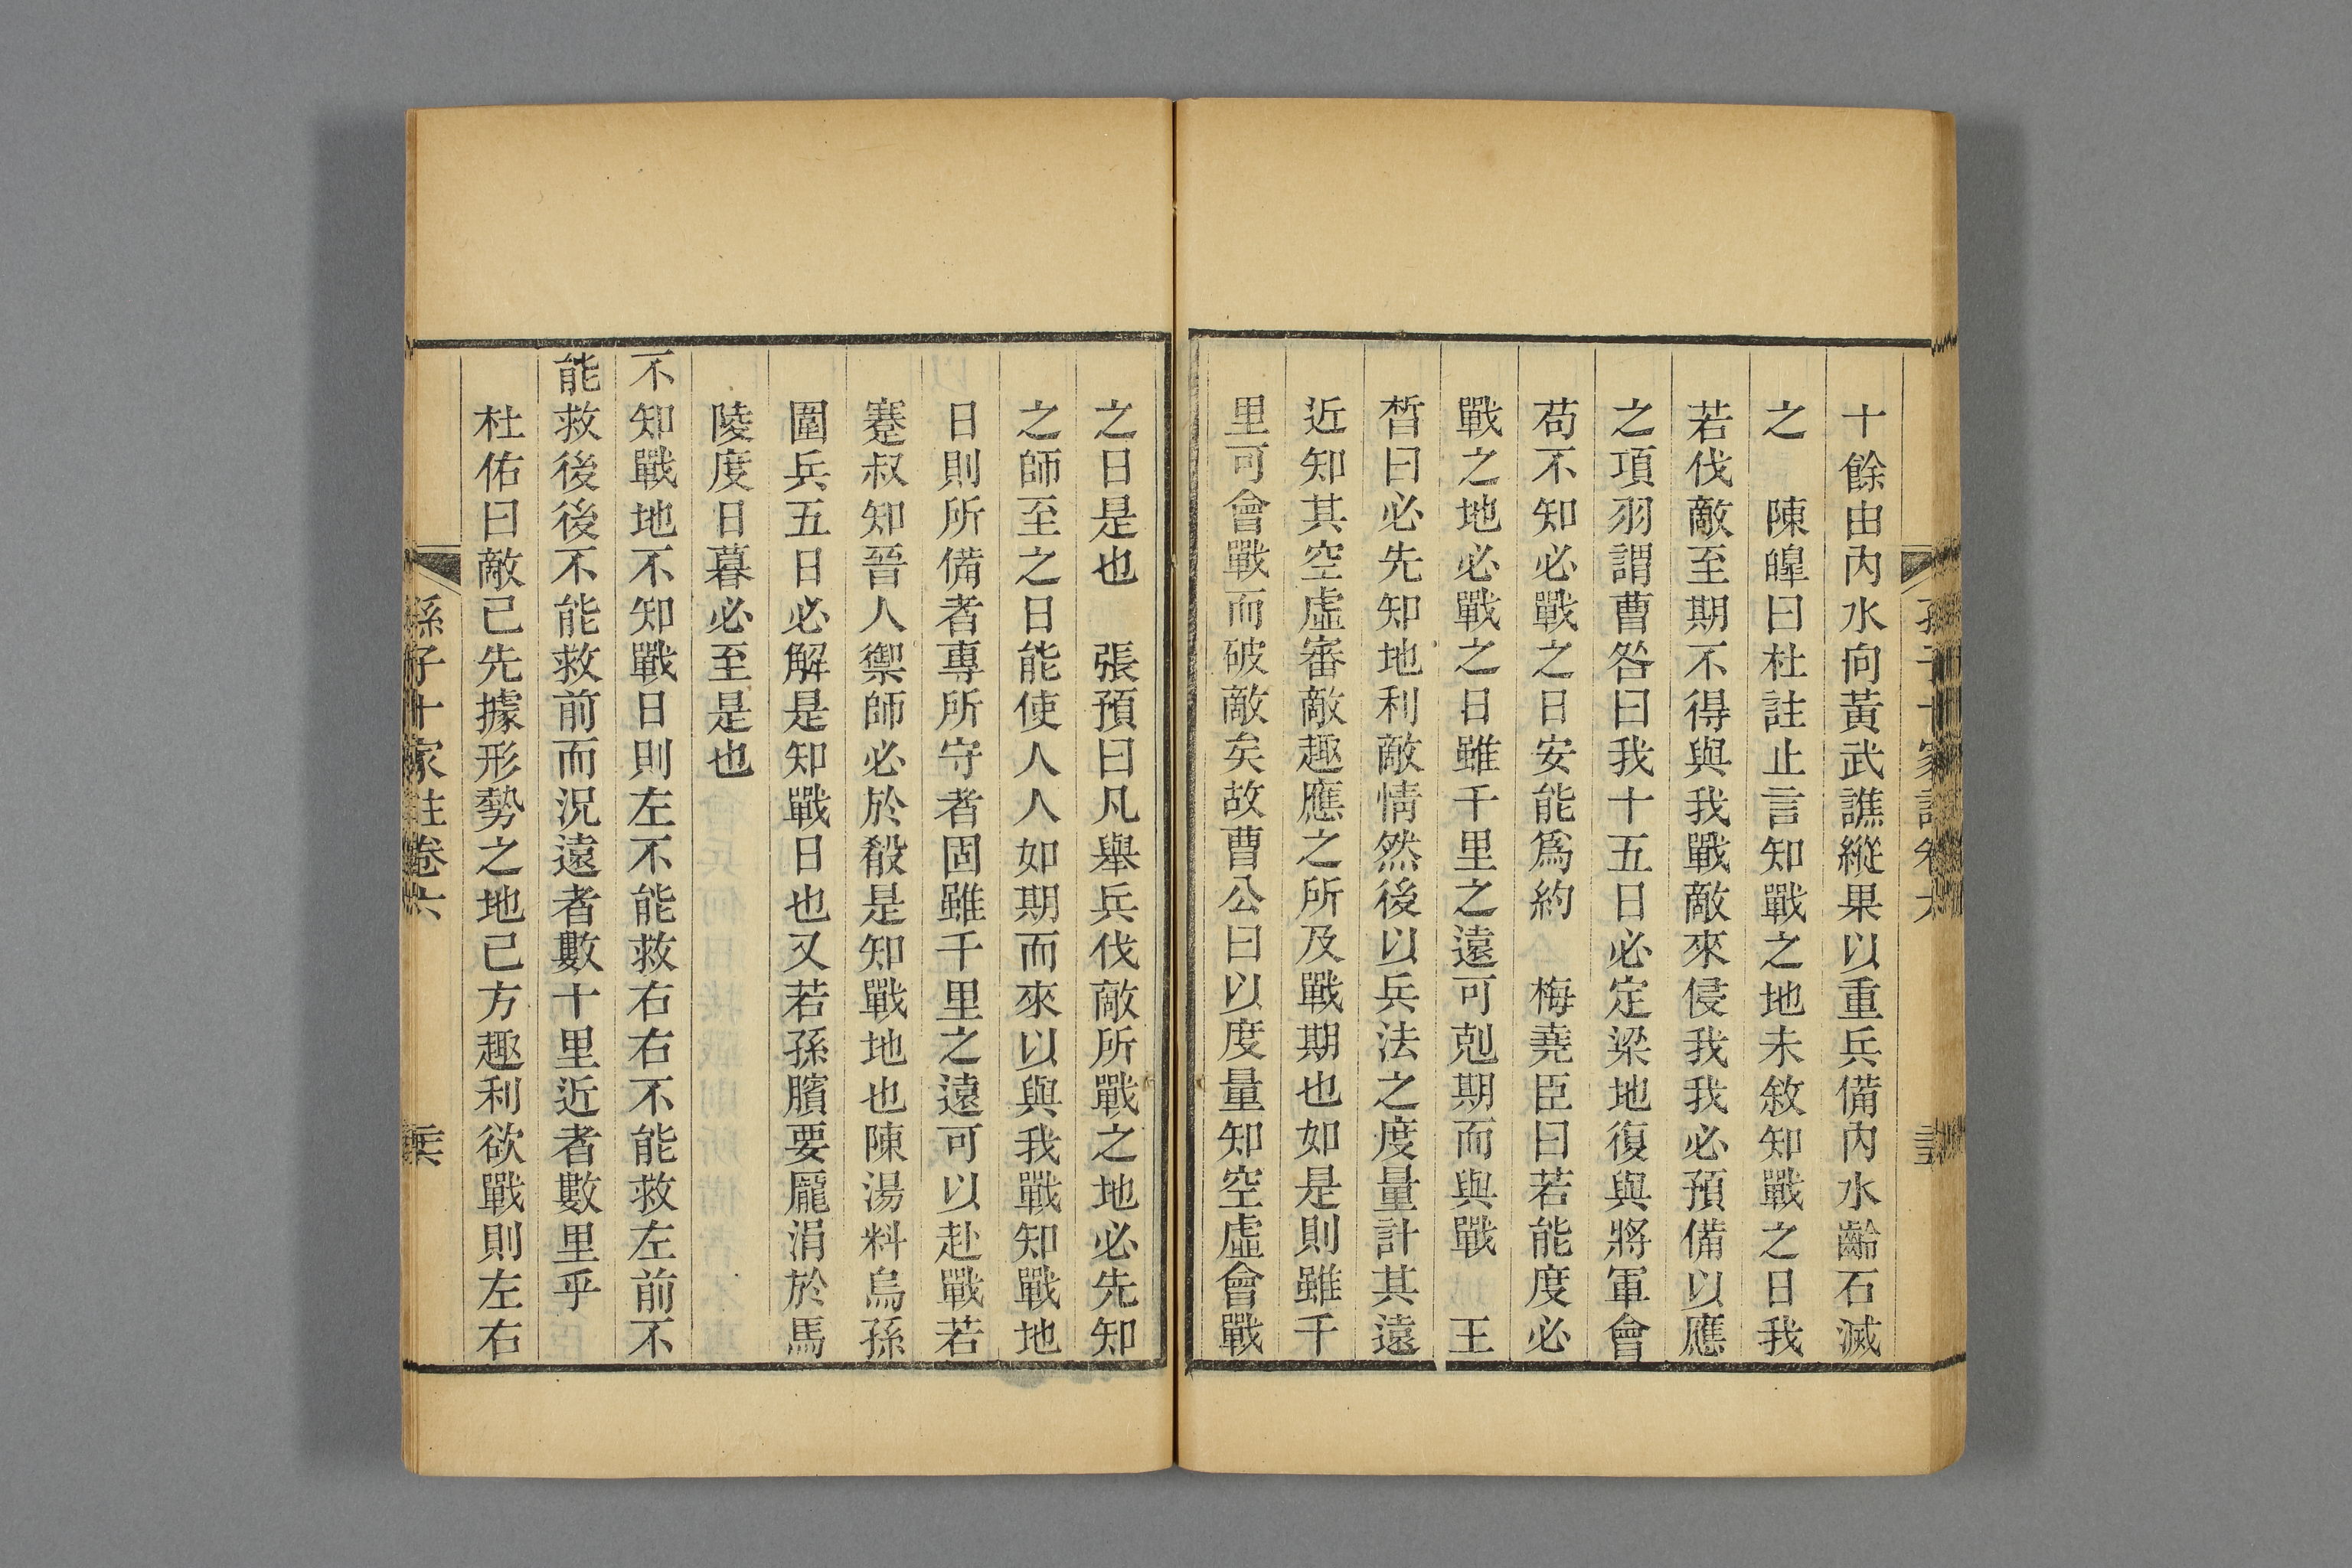 十餘由內水向黃武譙縱果以重兵備內水齡石滅
之　陳皥曰杜註止言知戰之地未敘知戰之日我
若伐敵至期不得與我戰敵來侵我我必預備以應
之項羽謂曹咎曰我十五日必定梁地復與將軍會
苟不知必戰之日安能爲約　梅堯臣曰若能度必
戰之地必戰之日雖千里之遠可剋期而與戰　王
晳曰必先知地利敵情然後以兵法之度量計其遠
近知其空虛審敵趣應之所及戰期也如是則雖千
里可會戰而破敵矣故曹公曰以度量知空虛會戰
之日是也　張預曰凡舉兵伐敵所戰之地必先知
之師至之日能使人人如期而來以與我戰知戰地
日則所備者專所守者固雖千里之遠可以赴戰若
蹇叔知晉人禦師必於殽是知戰地也陳湯料烏孫
圍兵五日必解是知戰日也又若孫臏要龐涓於馬
陵度日暮必至是也
不知戰地不知戰日則左不能救右右不能救左前不
能救後後不能救前而況遠者數十里近者數里乎
杜佑曰敵己先據形勢之地己方趣利欲戰則左右
孫子十家註卷六